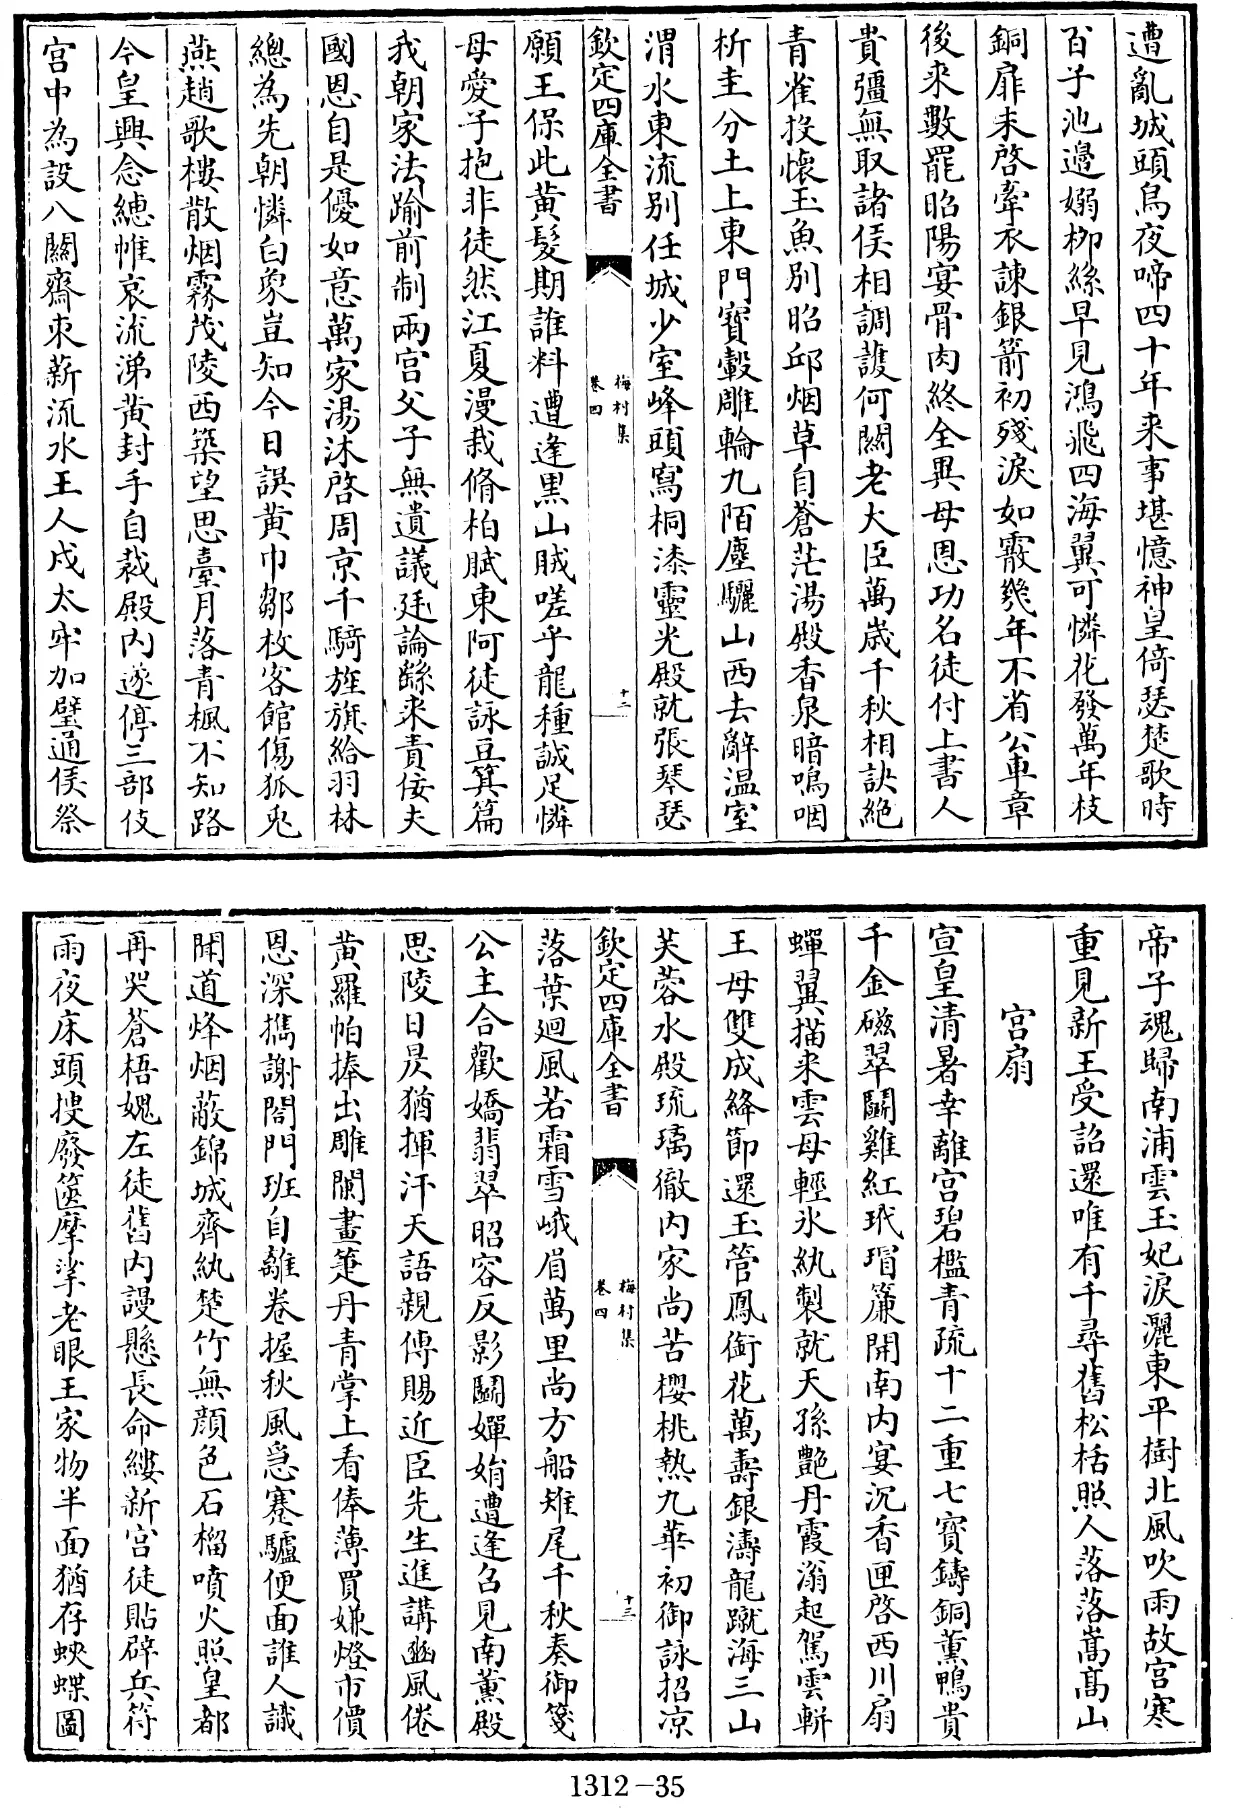 遭亂城頭烏夜啼四十年來事堪憶神皇倚瑟楚歌時
百子池邊嫋柳絲早見鴻飛四海翼可憐花發萬年枝
銅扉未啓牽衣諫銀箭初殘淚如霰幾年不省公車章
後來數罷昭陽宴骨肉終全異母恩功名徒付上書人
貴彊無取諸侯相調護何關老大臣萬歲千秋相訣絶
青雀投懷玉魚别昭邱烟草自蒼茫湯殿香泉暗鳴咽
析圭分土上東門寶轂雕輪九陌塵驪山西去辭温室
渭水東流别任城少室峰頭寫桐漆靈光殿就張琴瑟
欽定四庫全書
梅村集
卷四
十二
願王保此黄髮期誰料遭逢黒山賊嗟乎龍種誠足憐
母愛子抱非徒然江夏漫栽脩柏賦東阿徒詠豆萁篇
我朝家法踰前制兩宫父子無遺議廷論繇來責佞夫
國恩自是優如意萬家湯沐啓周京千騎旌旗給羽林
總為先朝憐白象豈知今日誤黄巾鄒枚客館傷狐兎
燕趙歌樓散烟霧茂陵西築望思臺月落青楓不知路
今皇興念繐帷哀流涕黄封手自裁殿内遂停三部伎
宫中為設八關齋束薪流水王人戍太牢加璧通侯祭
帝子魂歸南浦雲玉妃淚灑東平樹北風吹雨故宫寒
重見新王受詔還唯有千尋舊松栝照人落落嵩髙山
宫扇
宣皇清暑幸離宫碧檻青疏十二重七寳鑄銅薰鴨貴
千金磁翠鬭雞紅玳瑁簾開南内宴沉香匣啓西川扇
蟬翼描来雲母輕氷紈製就天孫艷丹霞滃起駕雲軿
王母雙成絳節還玉管鳳銜花萬壽銀濤龍蹴海三山
芙蓉水殿琉璃徹内家尚苦櫻桃熱九華初御詠招凉
欽定四庫全書
梅村集
卷四
十三
落葉廻風若霜雪峨眉萬里尚方船雉尾千秋奏御箋
公主合歡嬌翡翠昭容反影鬭嬋娟遭逢召見南薰殿
思陵日昃猶揮汗天語親傳賜近臣先生進講豳風倦
黄羅帕捧出雕闌畫箑丹青掌上看俸薄買嫌燈市價
恩深攜謝閤門班自離卷握秋風急蹇驢便面誰人識
聞道烽烟蔽錦城齊紈楚竹無顔色石榴噴火照皇都
再哭蒼梧媿左徒舊内謾懸長命縷新宫徒貼辟兵符
雨夜床頭捜廢篋摩挲老眼王家物半面猶存蛺蝶圖
1312-35